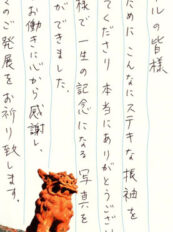 ルの皆様
ために こんなにステキな振袖を
てくださり 本当にありがとうござい
様で 一生の記念になる 写真を
ができました。
お働きに心から感謝し、
のご発展をお祈り致します。